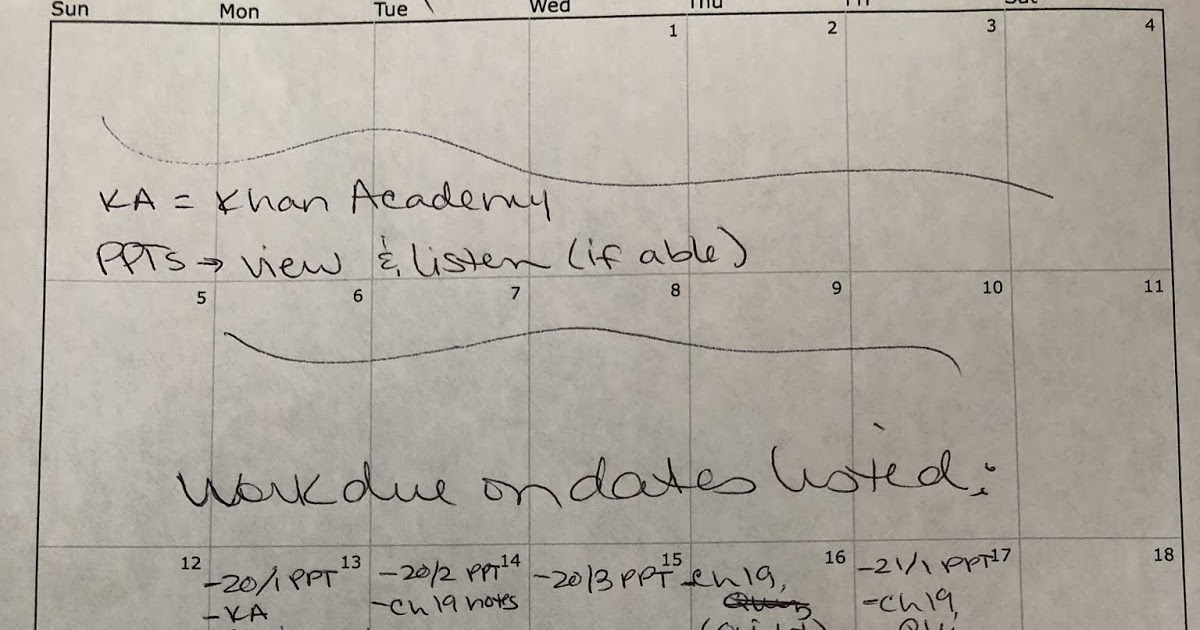 Sun Mon Tue Wed Thu Fri Sat
1 2 3 4
KA = Khan Academy
PPTs → view & listen (if able)
5 6 7 8 9 10 11
Work due on dates listed:
12 13 14 15 16 17 18
-20/1 PPT -20/2 PPT -20/3 PPT -Ch 19, -21/1 PPT
-KA -Ch 19 notes -Ch 19,